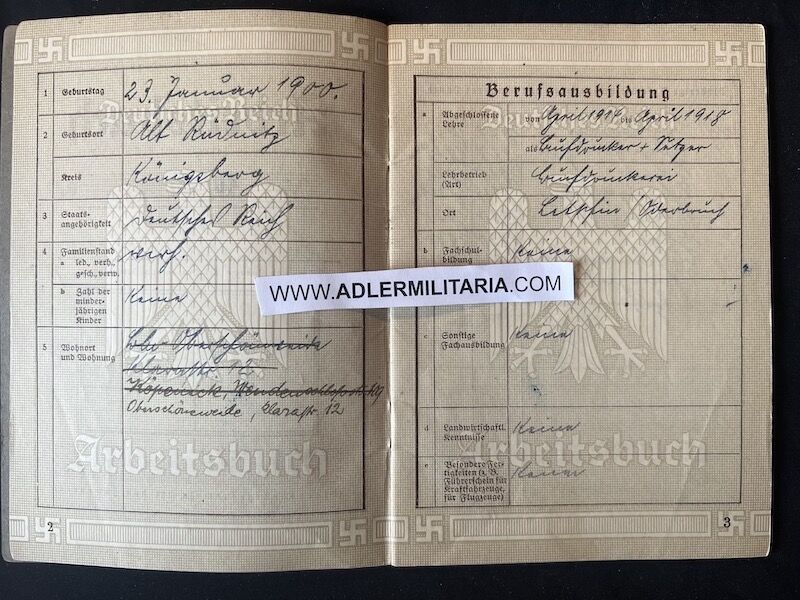 1 Geburtstag 23. Januar 1900.
2 Geburtsort Alt Rüdnitz
Kreis Königsberg
3 Staats-
angehörigkeit Deutsches Reich
4 Familienstand verh.
a led., verh.,
gesch., verw.
b Zahl der Keine
minder-
jährigen
Kinder
5 Wohnort Bln. Oberschöneweide
und Wohnung Clarastr. 12
Köpenick, Wendenschloßstr.
Oberschöneweide, Clarastr. 12
Deutsches Reich
Arbeitsbuch
2
Berufsausbildung
a Abgeschlossene von April 1914 bis April 1918
Lehre
als Buchdrucker + Setzer
Lehrbetrieb Buchdruckerei
(Art)
Ort Letschin /Oderbruch
b Fachschul- Keine
bildung
c Sonstige Keine
Fachausbildung
d Landwirtschaftl. Keine
Kenntnisse
e Besondere Fer- Keine
tigkeiten (z. B.
Führerschein für
Kraftfahrzeuge,
für Flugzeuge)
Deutsches Reich
Arbeitsbuch
3
WWW.ADLERMILITARIA.COM